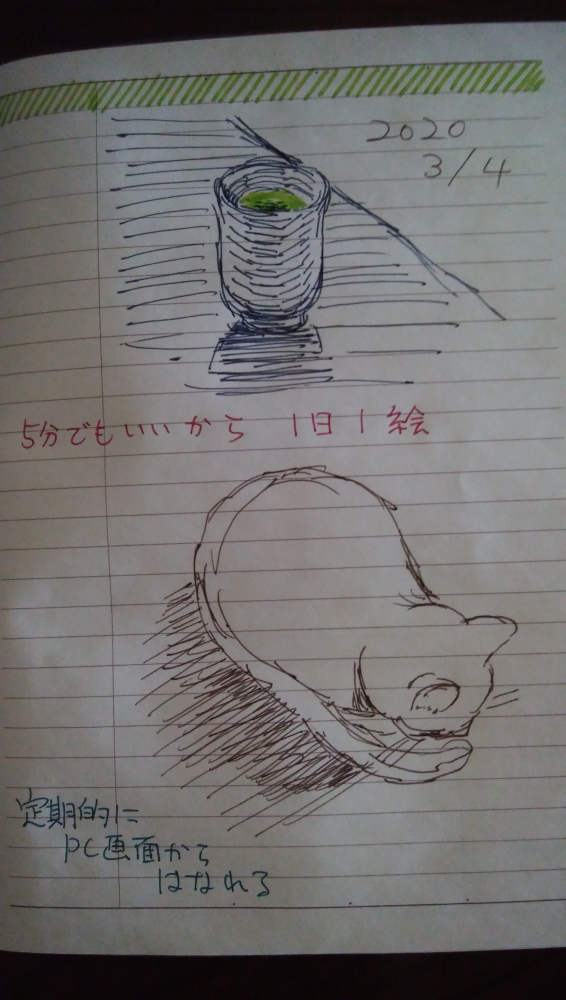 2020
3/4
5分でもいいから 1日1絵
定期的に
PC画面から
はなれる